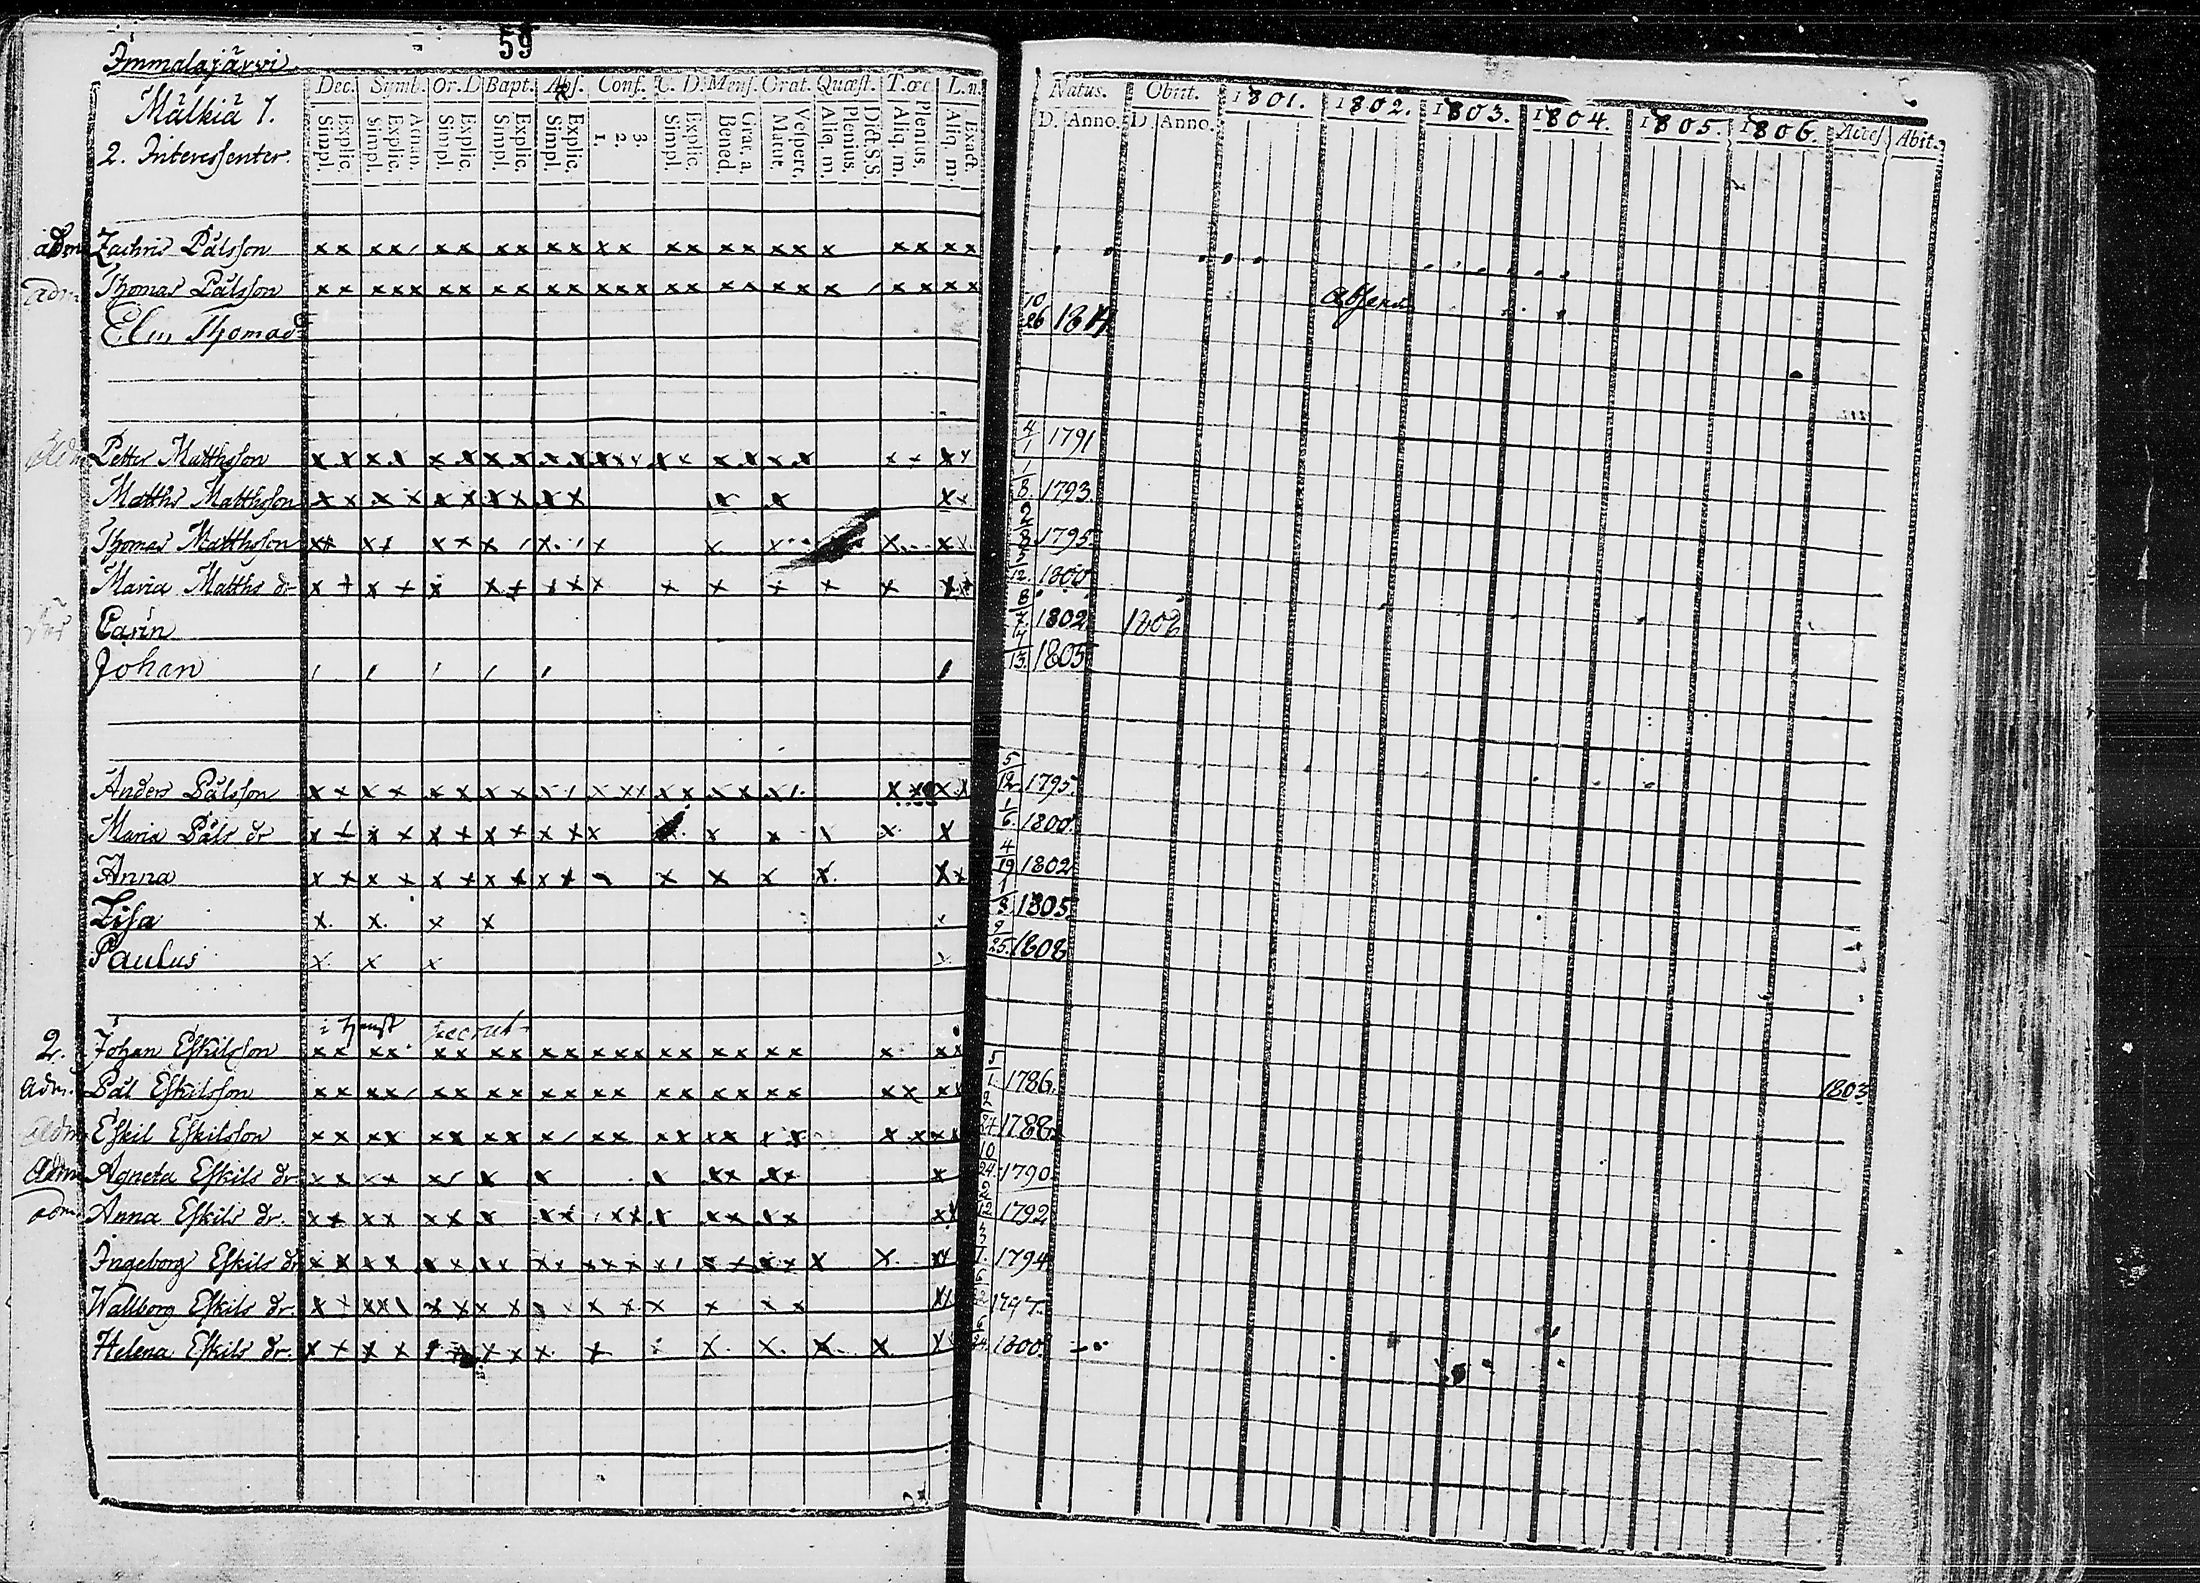 59
Immalajärvi
Mälkiä 1.
2. Interessenter.
Dec. Symb. Or. D Bapt. Abs. Conf. C. D. Mens. Orat. Quæst. T. œc L. n.
Explic. Simpl. Athan. Explic. Simpl. Explic. Simpl. Explic. Simpl. Explic. Simpl. 3. 2. 1. Explic. Simpl. Grat. a Bened. Vespert. Matut. Dict. S. S Plenius. Aliq. m. Plenius. Aliq. m. Exact. Aliq. m.
Natus. Obiit. 1801. 1802. 1803. 1804. 1805. 1806. Acces. Abit.
D. Anno. D. Anno.
adm Zachris Pålsson x x x x x x x x x x x x x x x x x x x x x x x x
adm Thomas Pålsson x x x x x x x x x x x x x x x x x x x x x x x x x x
Elin Thomasd 10/26 181 absens
adm Petter Matthsson 4/1 1791
Matths Matthsson 1/8. 1793.
Thomas Matthsson 1795
Maria Matths dr 5/12. 1800
Carin 8/7. 1802 1808
Johan 4/13. 1805
Anders Pålsson 5/12 1795.
Maria Påls dr 1/6. 1800.
Anna 4/19 1802
Lisa 1/8. 1805
Paulus 9/25. 1808
i Hemst recrut
2. Johan Eskilsson
adm. Pål Eskilsson 5/1. 1786. 1803
adm Eskil Eskilsson 1788.
adm Agneta Eskils dr 10/24. 1790
adm. Anna Eskils dr. 2/12 1792
Ingeborg Eskils dr 1794
Wallborg Eskils dr. 1797.
Helena Eskils dr. 6/24. 1800.